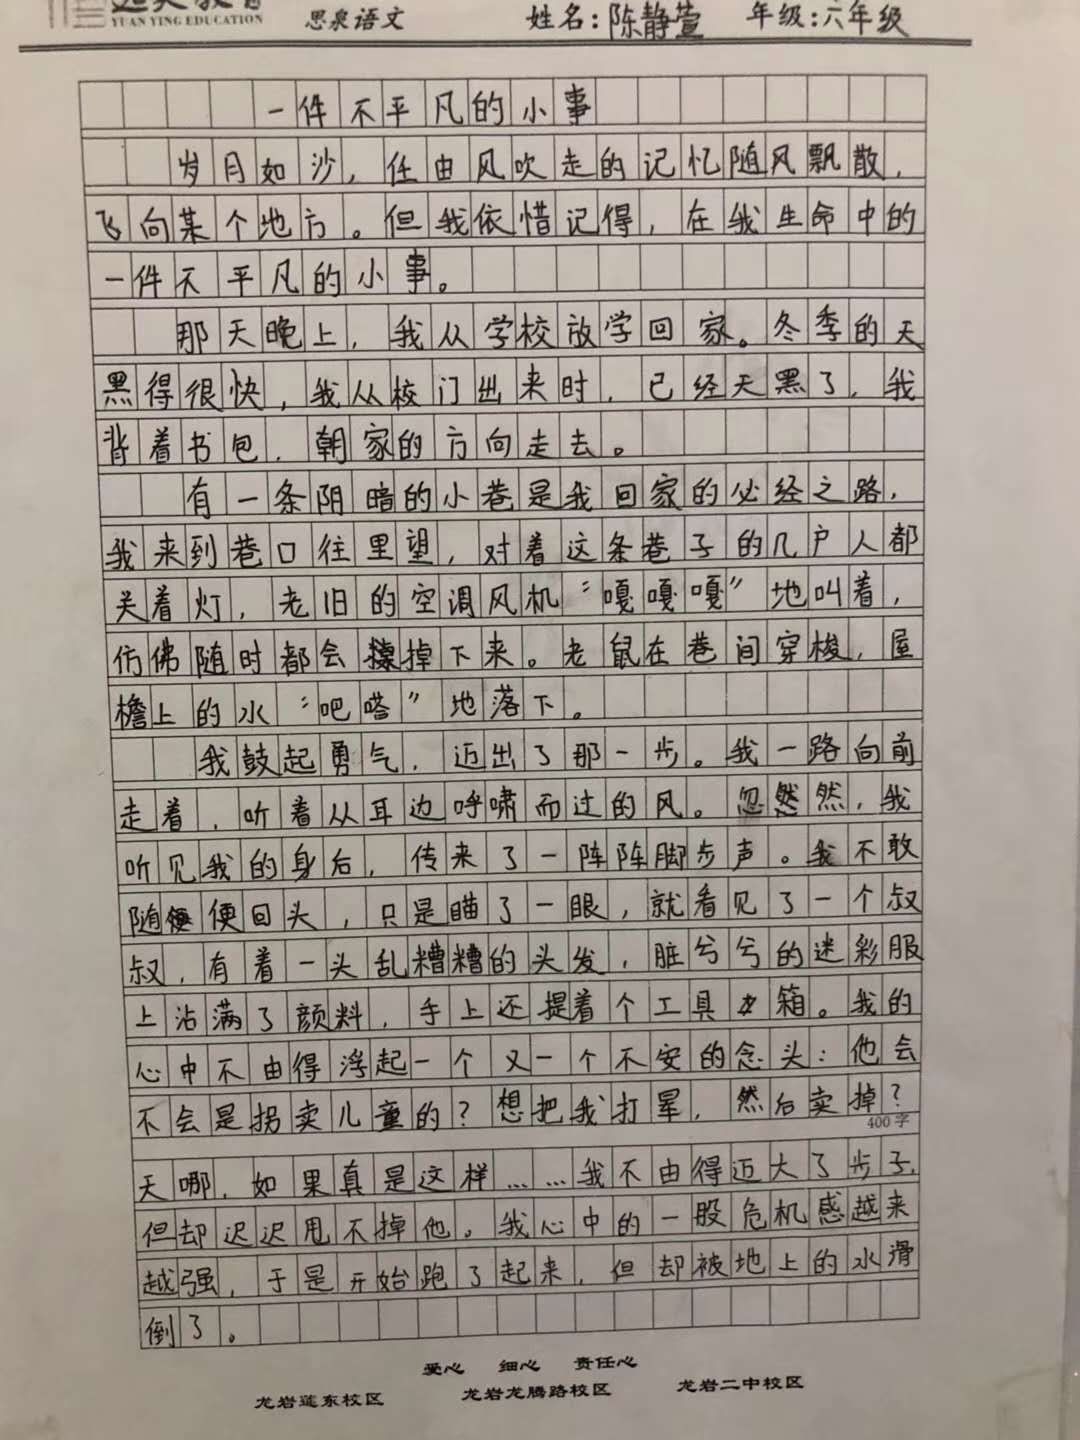 YUAN YING EDUCATION 思泉语文 姓名:陈静萱 年级:六年级
一件不平凡的小事
岁月如沙,任由风吹走的记忆随风飘散,
飞向某个地方。但我依惜记得,在我生命中的
一件不平凡的小事。
那天晚上,我从学校放学回家。冬季的天
黑得很快,我从校门出来时,已经天黑了,我
背着书包,朝家的方向走去。
有一条阴暗的小巷是我回家的必经之路,
我来到巷口往里望,对着这条巷子的几户人都
关着灯,老旧的空调风机“嘎嘎嘎”地叫着,
仿佛随时都会掉下来。老鼠在巷间穿梭,屋
檐上的水“吧嗒”地落下。
我鼓起勇气,迈出了那一步。我一路向前
走着,听着从耳边呼啸而过的风。忽然然,我
听见我的身后,传来了一阵阵脚步声。我不敢
随便回头,只是瞄了一眼,就看见了一个叔
叔,有着一头乱糟糟的头发,脏兮兮的迷彩服
上沾满了颜料,手上还提着个工具箱。我的
心中不由得浮起一个又一个不安的念头:他会
不会是拐卖儿童的?想把我打晕,然后卖掉?
400字
天哪,如果真是这样……我不由得迈大了步子,
但却迟迟甩不掉他。我心中的一股危机感越来
越强,于是开始跑了起来,但却被地上的水滑
倒了。
爱心 细心 责任心
龙岩莲东校区 龙岩龙腾路校区 龙岩二中校区